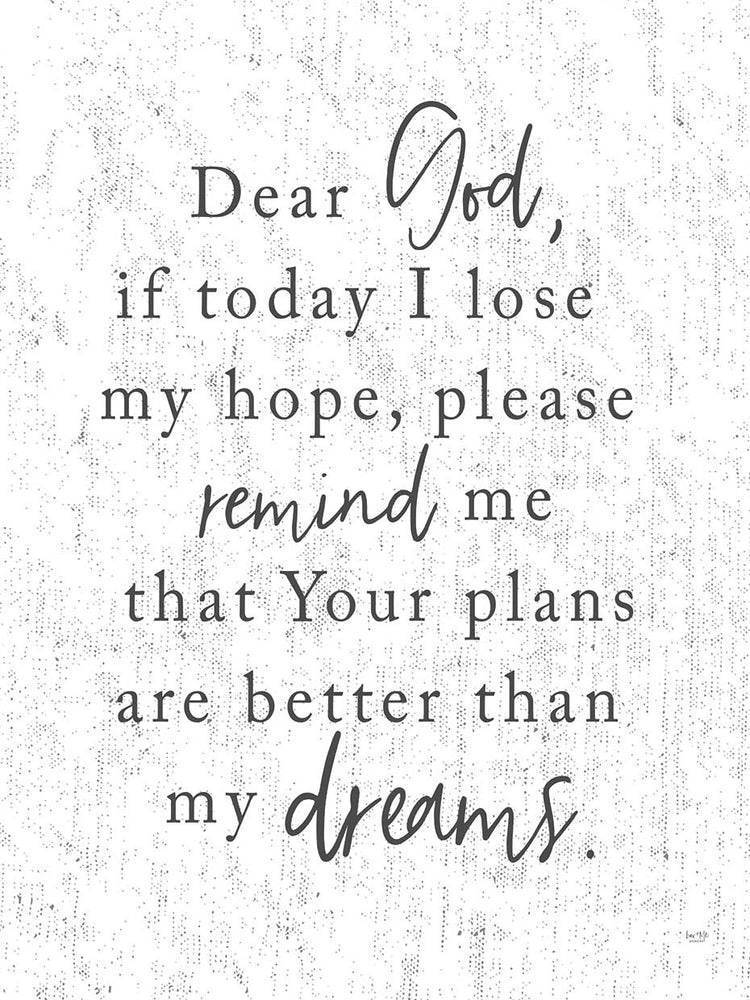 Dear God,
if today I lose
my hope, please
remind me
that Your plans
are better than
my dreams.